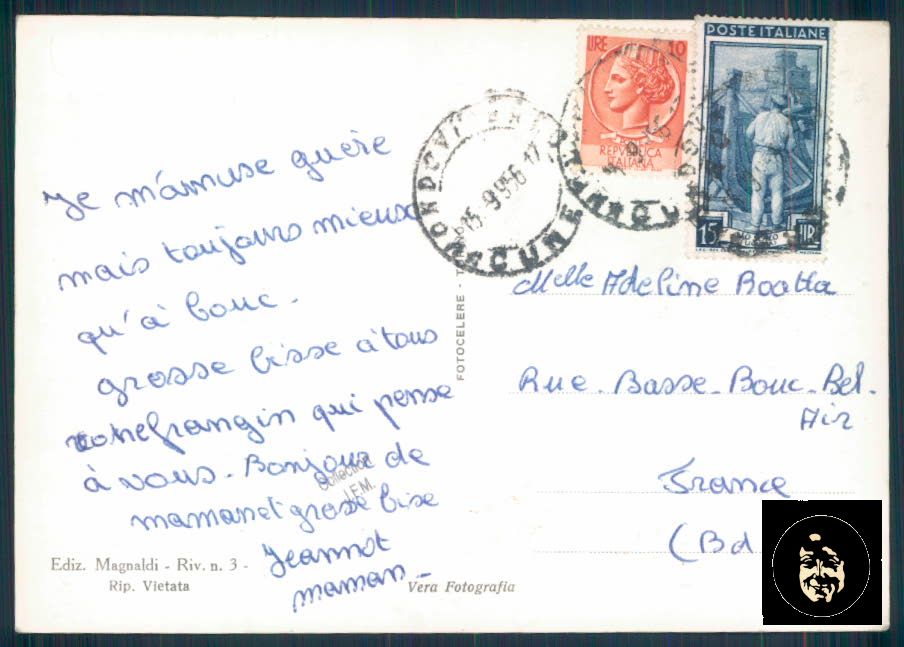 Je m'amuse guère
mais toujours mieux
qu'à bouc.
grosse bisse à tous
votre frangin qui pense
à vous. Bonjour de
maman et grosse bise
Jeannot
maman
Collection
J.F.M.
Ediz. Magnaldi - Riv. n. 3 -
Rip. Vietata
Vera Fotografia
FOTOCELERE - T
MONDOVI
15-9-1956-17
CUNEO
LIRE 10
REPVBBLICA
ITALIANA
POSTE ITALIANE
15 LIRE
Melle Adeline Boatta
Rue-Basse-Bouc-Bel-
Air
France
(Bd